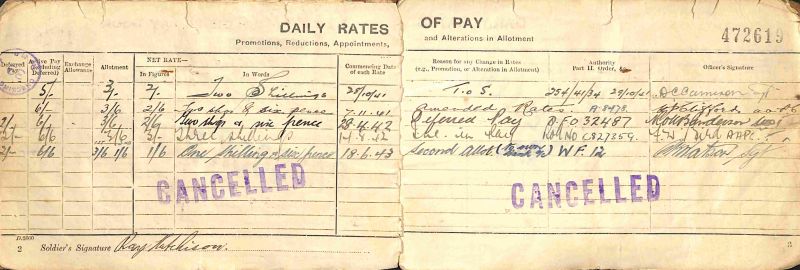 DAILY RATES OF PAY
Promotions, Reductions, Appointments, and Alterations in Allotment
472619
Deferred Pay
Active Pay (excluding Deferred)
Exchange Allowance
Allotment
NET RATE—
In Figures
In Words
Commencing Date of each Rate
Reason for any Change in Rates
(e.g., Promotion, or Alteration in Allotment)
Authority
Part II. Order, &c.
Officer's Signature
5/- 3/- 2/- Two Shillings 28/10/41 T.O.S. 254/41/34 29/10/41
6/- 3/6 2/6 Two shgs & six pence 7.11.41 Amended Rates A.8478
2/- 6/- 3/6 2/6 two shgs & six pence 28.4.42 Deferred Pay A.F.O 32487
6/6 3/6 3/- Three shillings Inc. in Pay
2/- 6/6 3/6 1/6 1/6 One shilling & six pence 18.6.43 Second allot. W.F.
CANCELLED
CANCELLED
D.2860
2 Soldier's Signature Ray Hutchison.
3